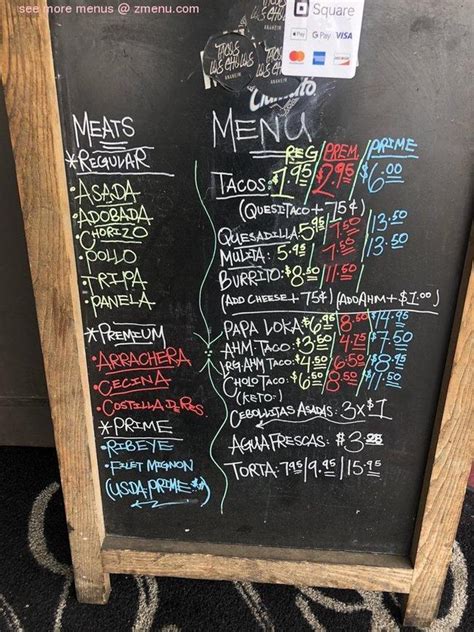 see more menus @ zmenu.com
Square
Pay G Pay VISA
mastercard DISCOVER
TACOS
LOS CHOLOS
ANAHEIM
MEATS
*REGULAR
•ASADA
•ADOBADA
•CHORIZO
•POLLO
•TRIPA
•PANELA
*PREMIUM
•ARRACHERA
•CECINA
•COSTILLA DE RES
*PRIME
•RIBEYE
•FILET MIGNON
(USDA PRIME)
MENU
REG / PREM. / PRIME
TACOS: $1.95 $2.95 $6.00
(QUESITACO + 75¢)
QUESADILLA: 5.95 7.50 13.50
MULITA: 5.95 7.50 13.50
BURRITO: $8.50 11.50
(ADD CHEESE + 75¢) (ADD AHM + $1.00)
PAPA LOKA: $6.95 8.50 $14.95
AHM TACO: $3.50 4.75 $7.50
RG AHM TACO: $4.50 6.50 $8.95
CHOLO TACO: $6.50 8.50 $11.50
(KETO)
CEBOLLITAS ASADAS: 3x$1
AGUA FRESCAS: $3.25
TORTA: 7.95 / 9.95 / 15.95